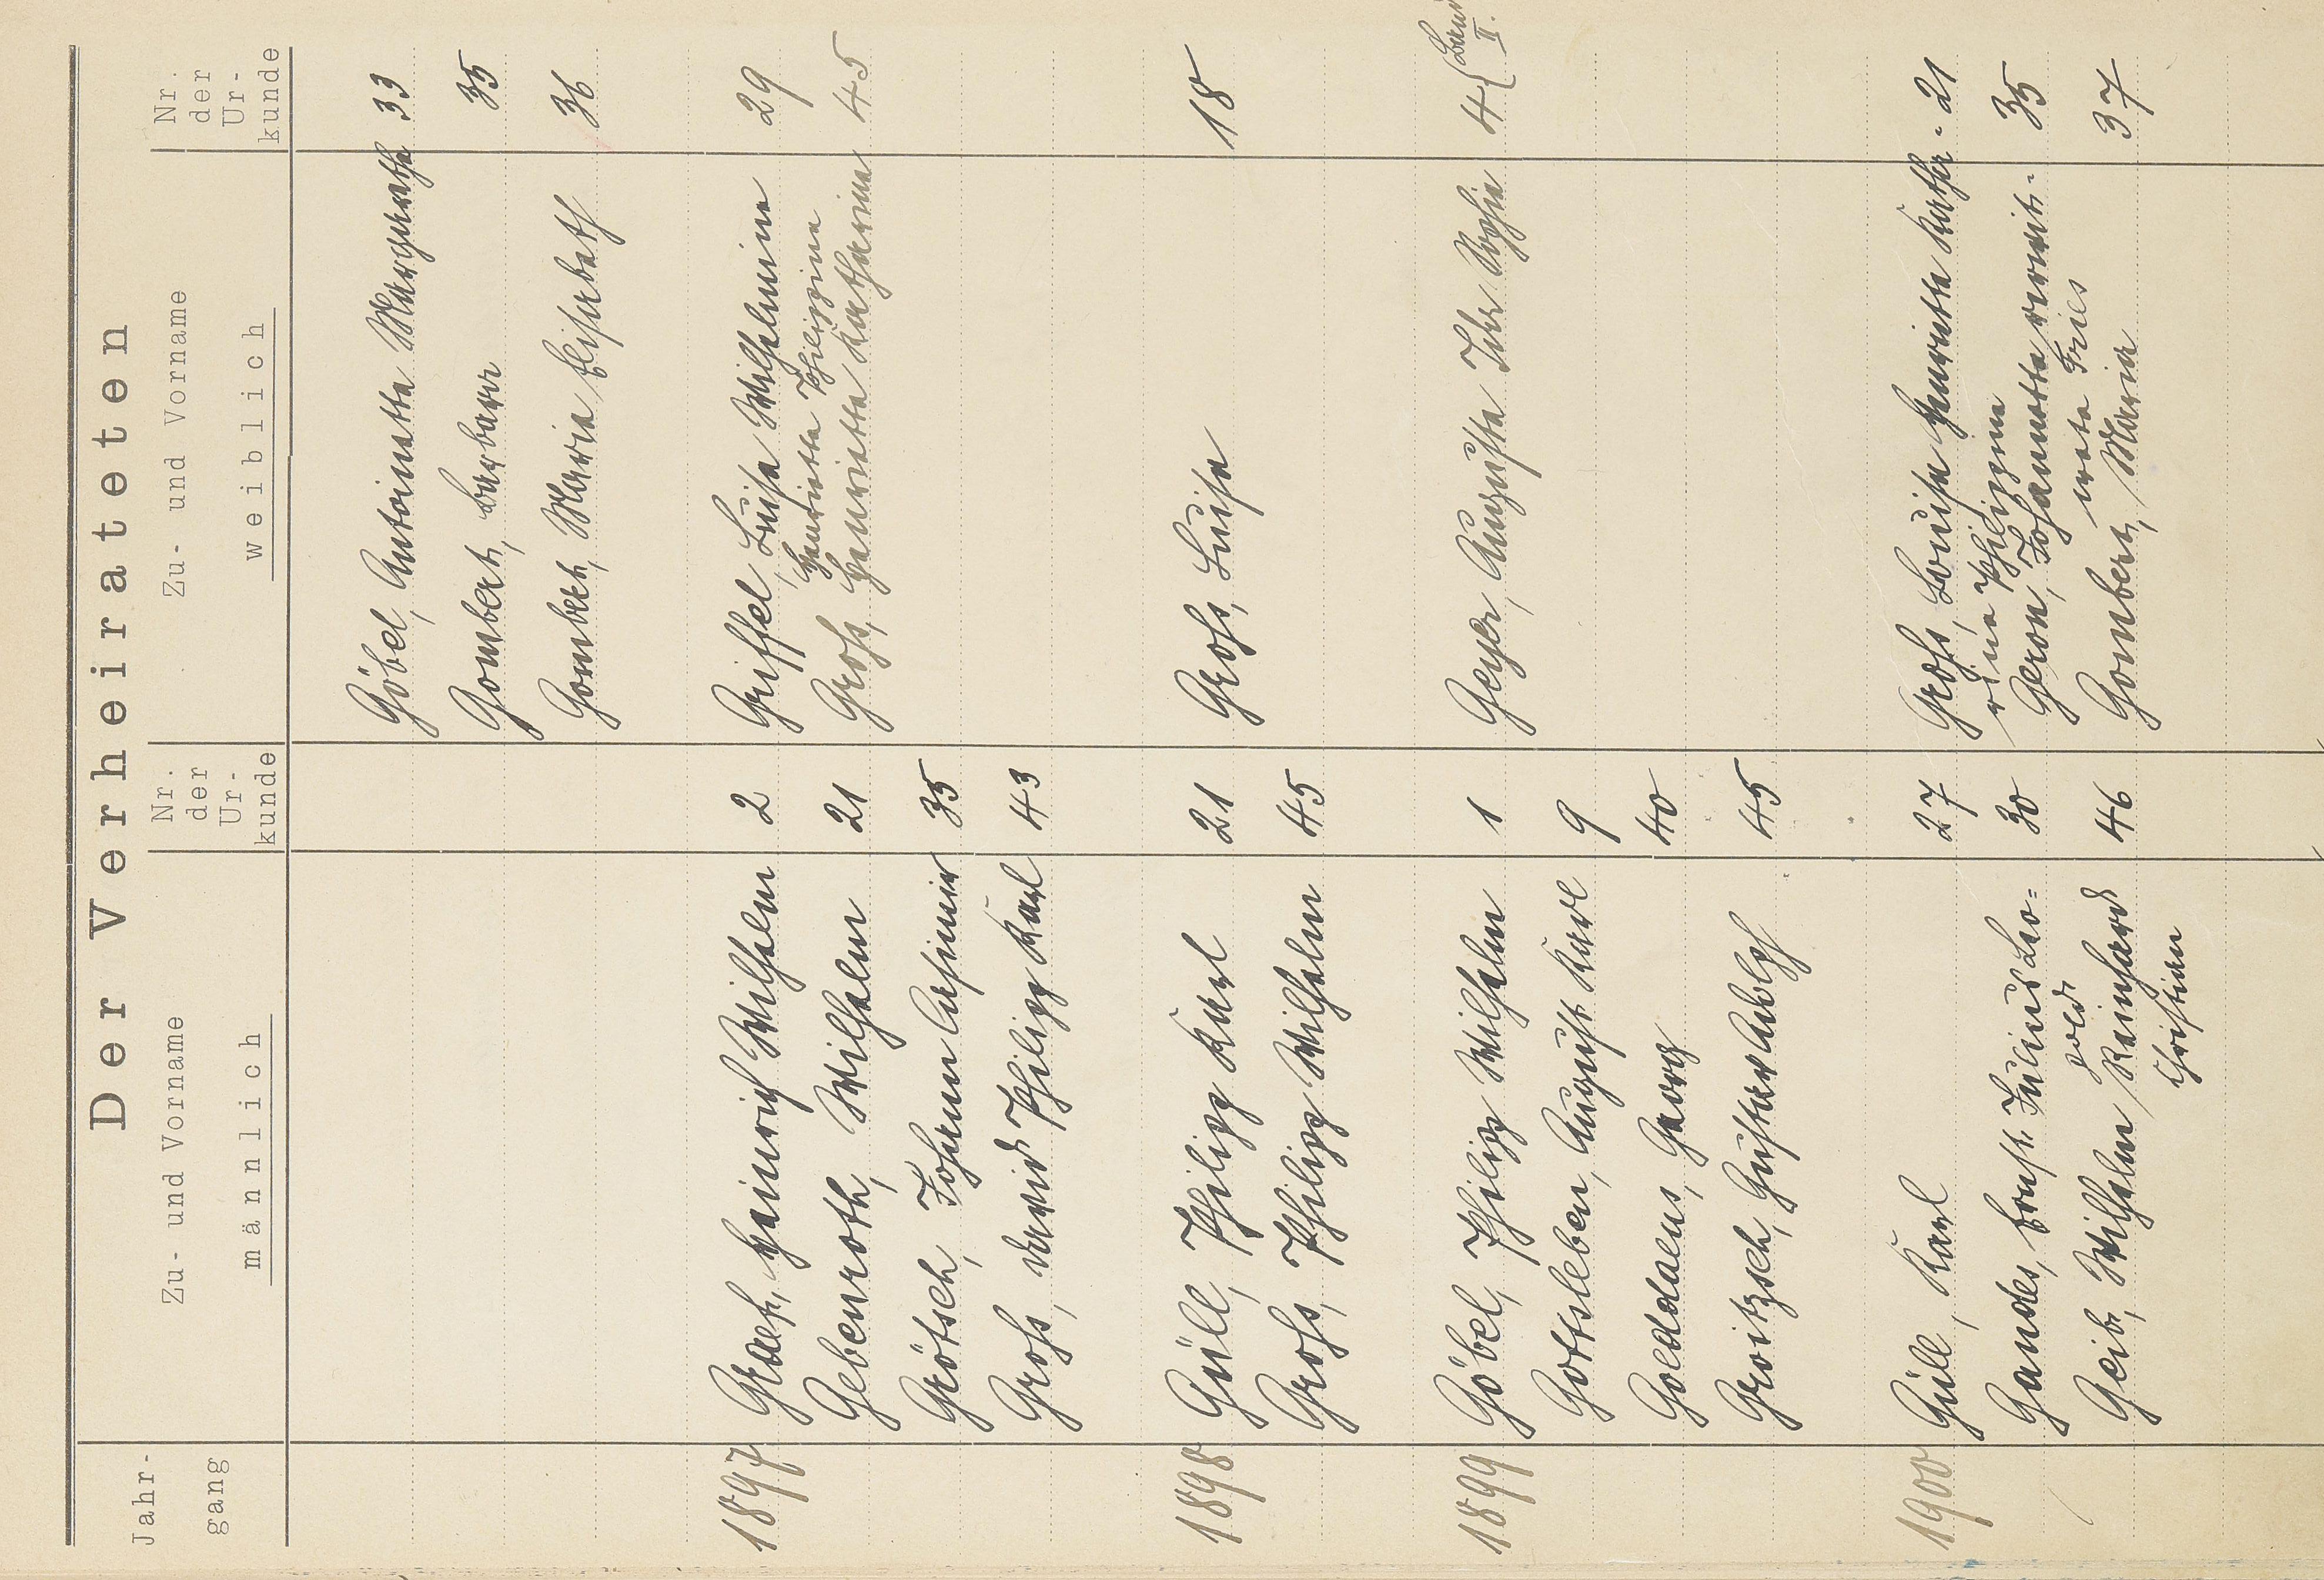 Der Verheirateten
Jahr-
gang
Zu- und Vorname
männlich
Nr.
der
Ur-
kunde
Zu- und Vorname
weiblich
Nr.
der
Ur-
kunde
Göbel, Antoinette Margarethe 33
Gombert, Barbara 35
Gombert, Maria Elisabeth 36
1897 Graef, Heinrich Wilhelm 2 Griffel, Luise Wilhelmine 29
Henriette Philippine
Gebenroth, Wilhelm 21 Groß, Henriette Katharina 45
Grötsch, Johann 35
Groß, David Philipp Karl 43
1898 Güll, Philipp Karl 21 Groß, Luise 18
Groß, Philipp Wilhelm 45
1899 Göbel, Philipp Wilhelm 1 Geyer, Auguste Ida Sophie 4 { Band
II.
Gottsleben, August Karl 9
Golddaens, Georg 40
Groitzsch, Gustav Adolph 45
1900 Güll, Karl 27 Groß, Louise Henriette Kathe- 21
rina Philippine
Gandes, Ernst Julius Leo= 30 Geron, Johannette verwit- 35
pold wete Fries
Geib, Wilhelm Reinhard 46 Gombert, Maria 37
Christian